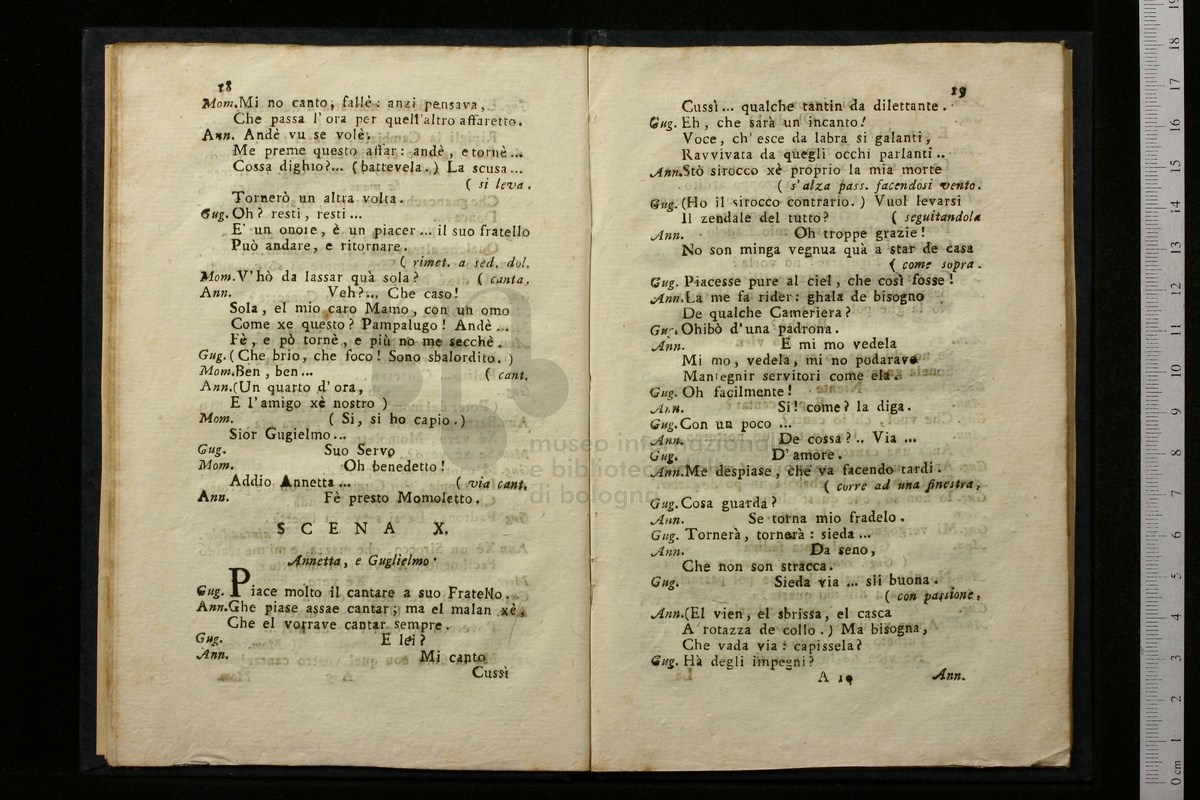 18
Mom. Mi no canto, fallè: anzi pensava,
Che passa l'ora per quell'altro affaretto.
Ann. Andè vu se volè.
Me preme questo affar: andè, e tornè...
Cossa dighio?... (battevela.) La scusa...
( si leva.
Tornerò un altra volta.
Gug. Oh? resti, resti...
E' un onore, è un piacer... il suo fratello
Può andare, e ritornare.
( rimet. a sed. dol.
Mom. V'hò da lassar quà sola? ( canta,
Ann. Veh?... Che caso!
Sola, el mio caro Mamo, con un omo
Come xe questo? Pampalugo! Andè...
Fè, e pò tornè, e più no me secchè.
Gug. (Che brio, che foco! Sono sbalordito.)
Mom. Ben, ben... ( cant.
Ann. (Un quarto d'ora,
E l'amigo xè nostro)
Mom. ( Si, si ho capio.)
Sior Gugielmo...
Gug. Suo Servo
Mom. Oh benedetto!
Addio Annetta... ( via cant.
Ann. Fè presto Momoletto.
SCENA X.
Annetta, e Guglielmo
Gug. Piace molto il cantare a suo Fratello.
Ann. Ghe piase assae cantar; ma el malan xè,
Che el vorrave cantar sempre.
Gug. E lei?
Ann. Mi canto
Cussì
19
Cussì... qualche tantin da dilettante.
Gug. Eh, che sarà un incanto!
Voce, ch'esce da labra si galanti,
Ravvivata da quegli occhi parlanti..
Ann. Stò sirocco xè proprio la mia morte
( s'alza pass. facendosi vento.
Gug. (Ho il sirocco contrario.) Vuol levarsi
Il zendale del tutto? ( seguitandola
Ann. Oh troppe grazie!
No son minga vegnua quà a star de casa
( come sopra.
Gug. Piacesse pure al ciel, che così fosse!
Ann. La me fa rider: ghala de bisogno
De qualche Cameriera?
Gug. Ohibò d'una padrona.
Ann. E mi mo vedela
Mi mo, vedela, mi no podarave
Mantegnir servitori come ela.
Gug. Oh facilmente!
Ann. Si! come? la diga.
Gug. Con un poco ...
Ann. De cossa?.. Via ...
Gug. D'amore.
Ann. Me despiase, che va facendo tardi.
( corre ad una finestra,
Gug. Cosa guarda?
Ann. Se torna mio fradelo.
Gug. Tornerà, tornerà: sieda...
Ann. Da seno,
Che non son stracca.
Gug. Sieda via ... sii buona.
( con passione,
Ann. (El vien, el sbrissa, el casca
A rotazza de collo.) Ma bisogna,
Che vada via: capissela?
Gug. Hà degli impegni?
A 10 Ann.
museo internazionale
e biblioteca
di bologna